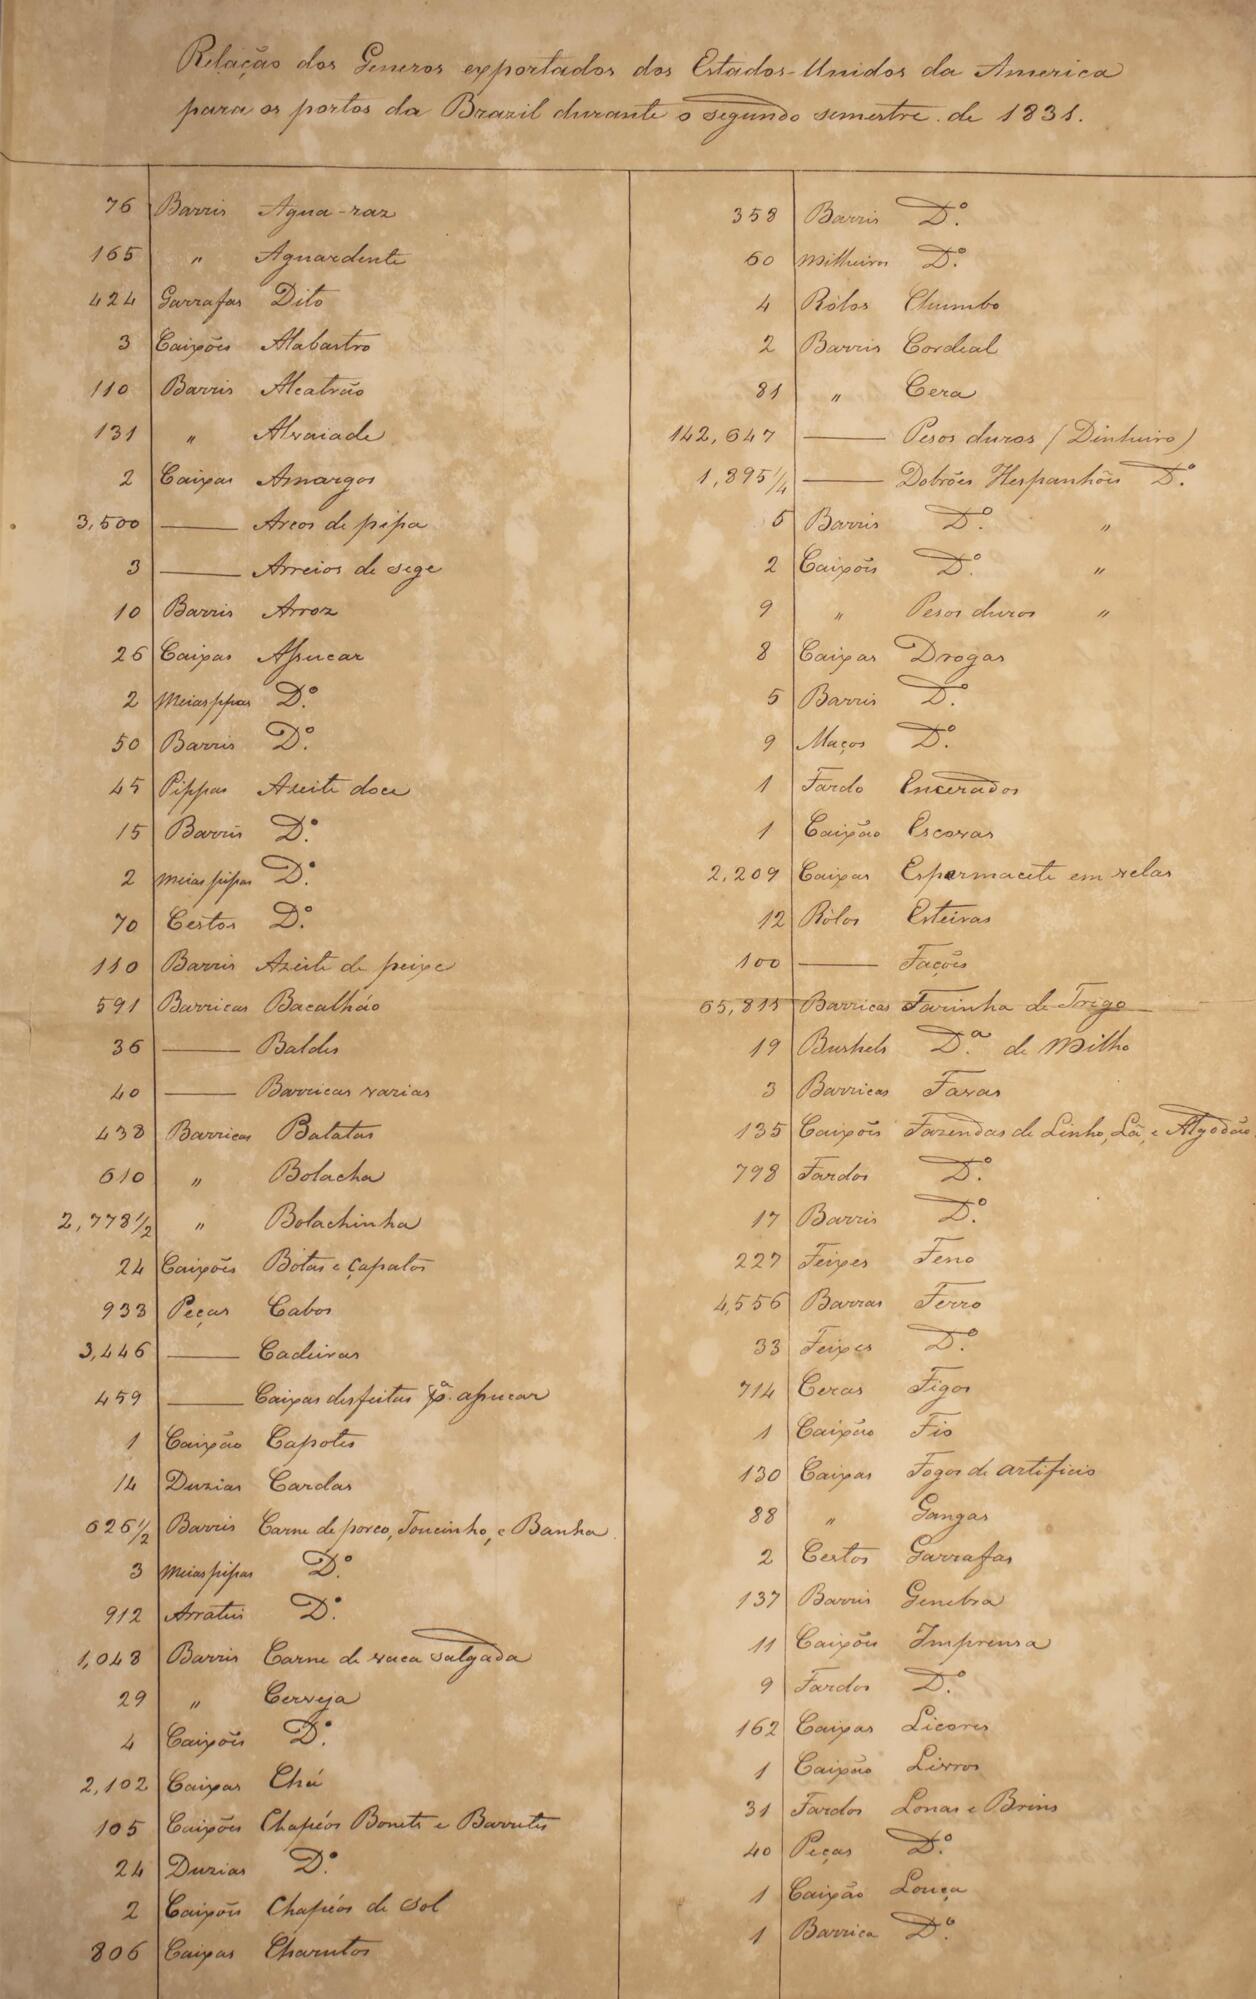 Relação dos Generos exportados dos Estados-Unidos da America
para os portos da Brazil durante o segundo semestre de 1831.
76 Barris Agua-raz
165 " Aguardente
424 Garrafas Dito
3 Caixões Alabastro
110 Barris Alcatrão
131 " Alvaiade
2 Caixas Amargos
3,500 — Arcos de pipa
3 — Arreios de sege
10 Barris Arroz
26 Caixas Assucar
2 Meias ppas Dº.
50 Barris Dº.
45 Pippas Azeite doce
15 Barris Dº.
2 Meias pipas Dº.
70 Cestos Dº.
110 Barris Azeite de peixe
591 Barricas Bacalháo
36 — Baldes
40 — Barricas varias
438 Barricas Batatas
610 " Bolacha
2,778 1/2 " Bolachinha
24 Caixões Botas e çapatos
933 Peças Cabos
3,446 — Cadeiras
459 — Caixas desfeitas pª. assucar
1 Caixão Capotes
14 Duzias Cardas
626 1/2 Barris Carne de porco, Toucinho, e Banha.
3 Meias pipas Dº.
912 Arrateis Dº.
1,048 Barris Carne de vaca salgada
29 " Cerveja
4 Caixões Dº.
2,102 Caixas Chá
105 Caixões Chapéos Bonets e Barretes
24 Duzias Dº.
2 Caixões Chapéos de sol
806 Caixas Charutos
358 Barris Dº.
60 Milheiros Dº.
4 Rólos Chumbo
2 Barris Cordial
81 " Cera
142,647 — Pesos duros (Dinheiro)
1,895 1/4 — Dobrões Hespanhões Dº.
5 Barris Dº. "
2 Caixões Dº. "
9 " Pesos duros "
8 Caixas Drogas
5 Barris Dº.
9 Maços Dº.
1 Fardo Encerados
1 Caixão Escovas
2,209 Caixas Espermacete em velas
12 Rólos Esteiras
100 — Facões
65,815 Barricas Farinha de Trigo
19 Bushels Dª. de Milho
3 Barricas Favas
135 Caixões Fazendas de Linho, Lã, e Algodão
798 Fardos Dº.
17 Barris Dº.
227 Feixes Feno
4,556 Barras Ferro
33 Feixes Dº.
714 Ceras Figos
1 Caixão Fio
130 Caixas Fogos de artificio
88 " Gangas
2 Cestos Garrafas
137 Barris Genebra
11 Caixões Imprensa
9 Fardos Dº.
162 Caixas Licores
1 Caixão Livros
31 Fardos Lonas e Brins
40 Peças Dº.
1 Caixão Louça
1 Barrica Dº.